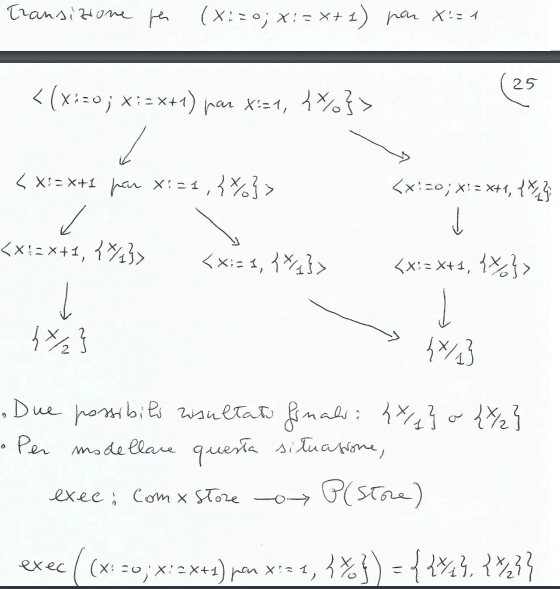 Transizione per (x:=0; x:=x+1) par x:=1
(25
<(x:=0; x:=x+1) par x:=1, {x/0}>
<x:=x+1 par x:=1, {x/0}> <x:=0; x:=x+1, {x/1}
<x:=x+1, {x/1}> <x:=1, {x/1}> <x:=x+1, {x/0}>
{x/2} {x/1}
. Due possibili risultati finali: {x/1} o {x/2}
• Per modellare questa situazione,
exec: Com x Store —o→ P(Store)
exec((x:=0; x:=x+1) par x:=1, {x/0}) = {{x/1}, {x/2}}